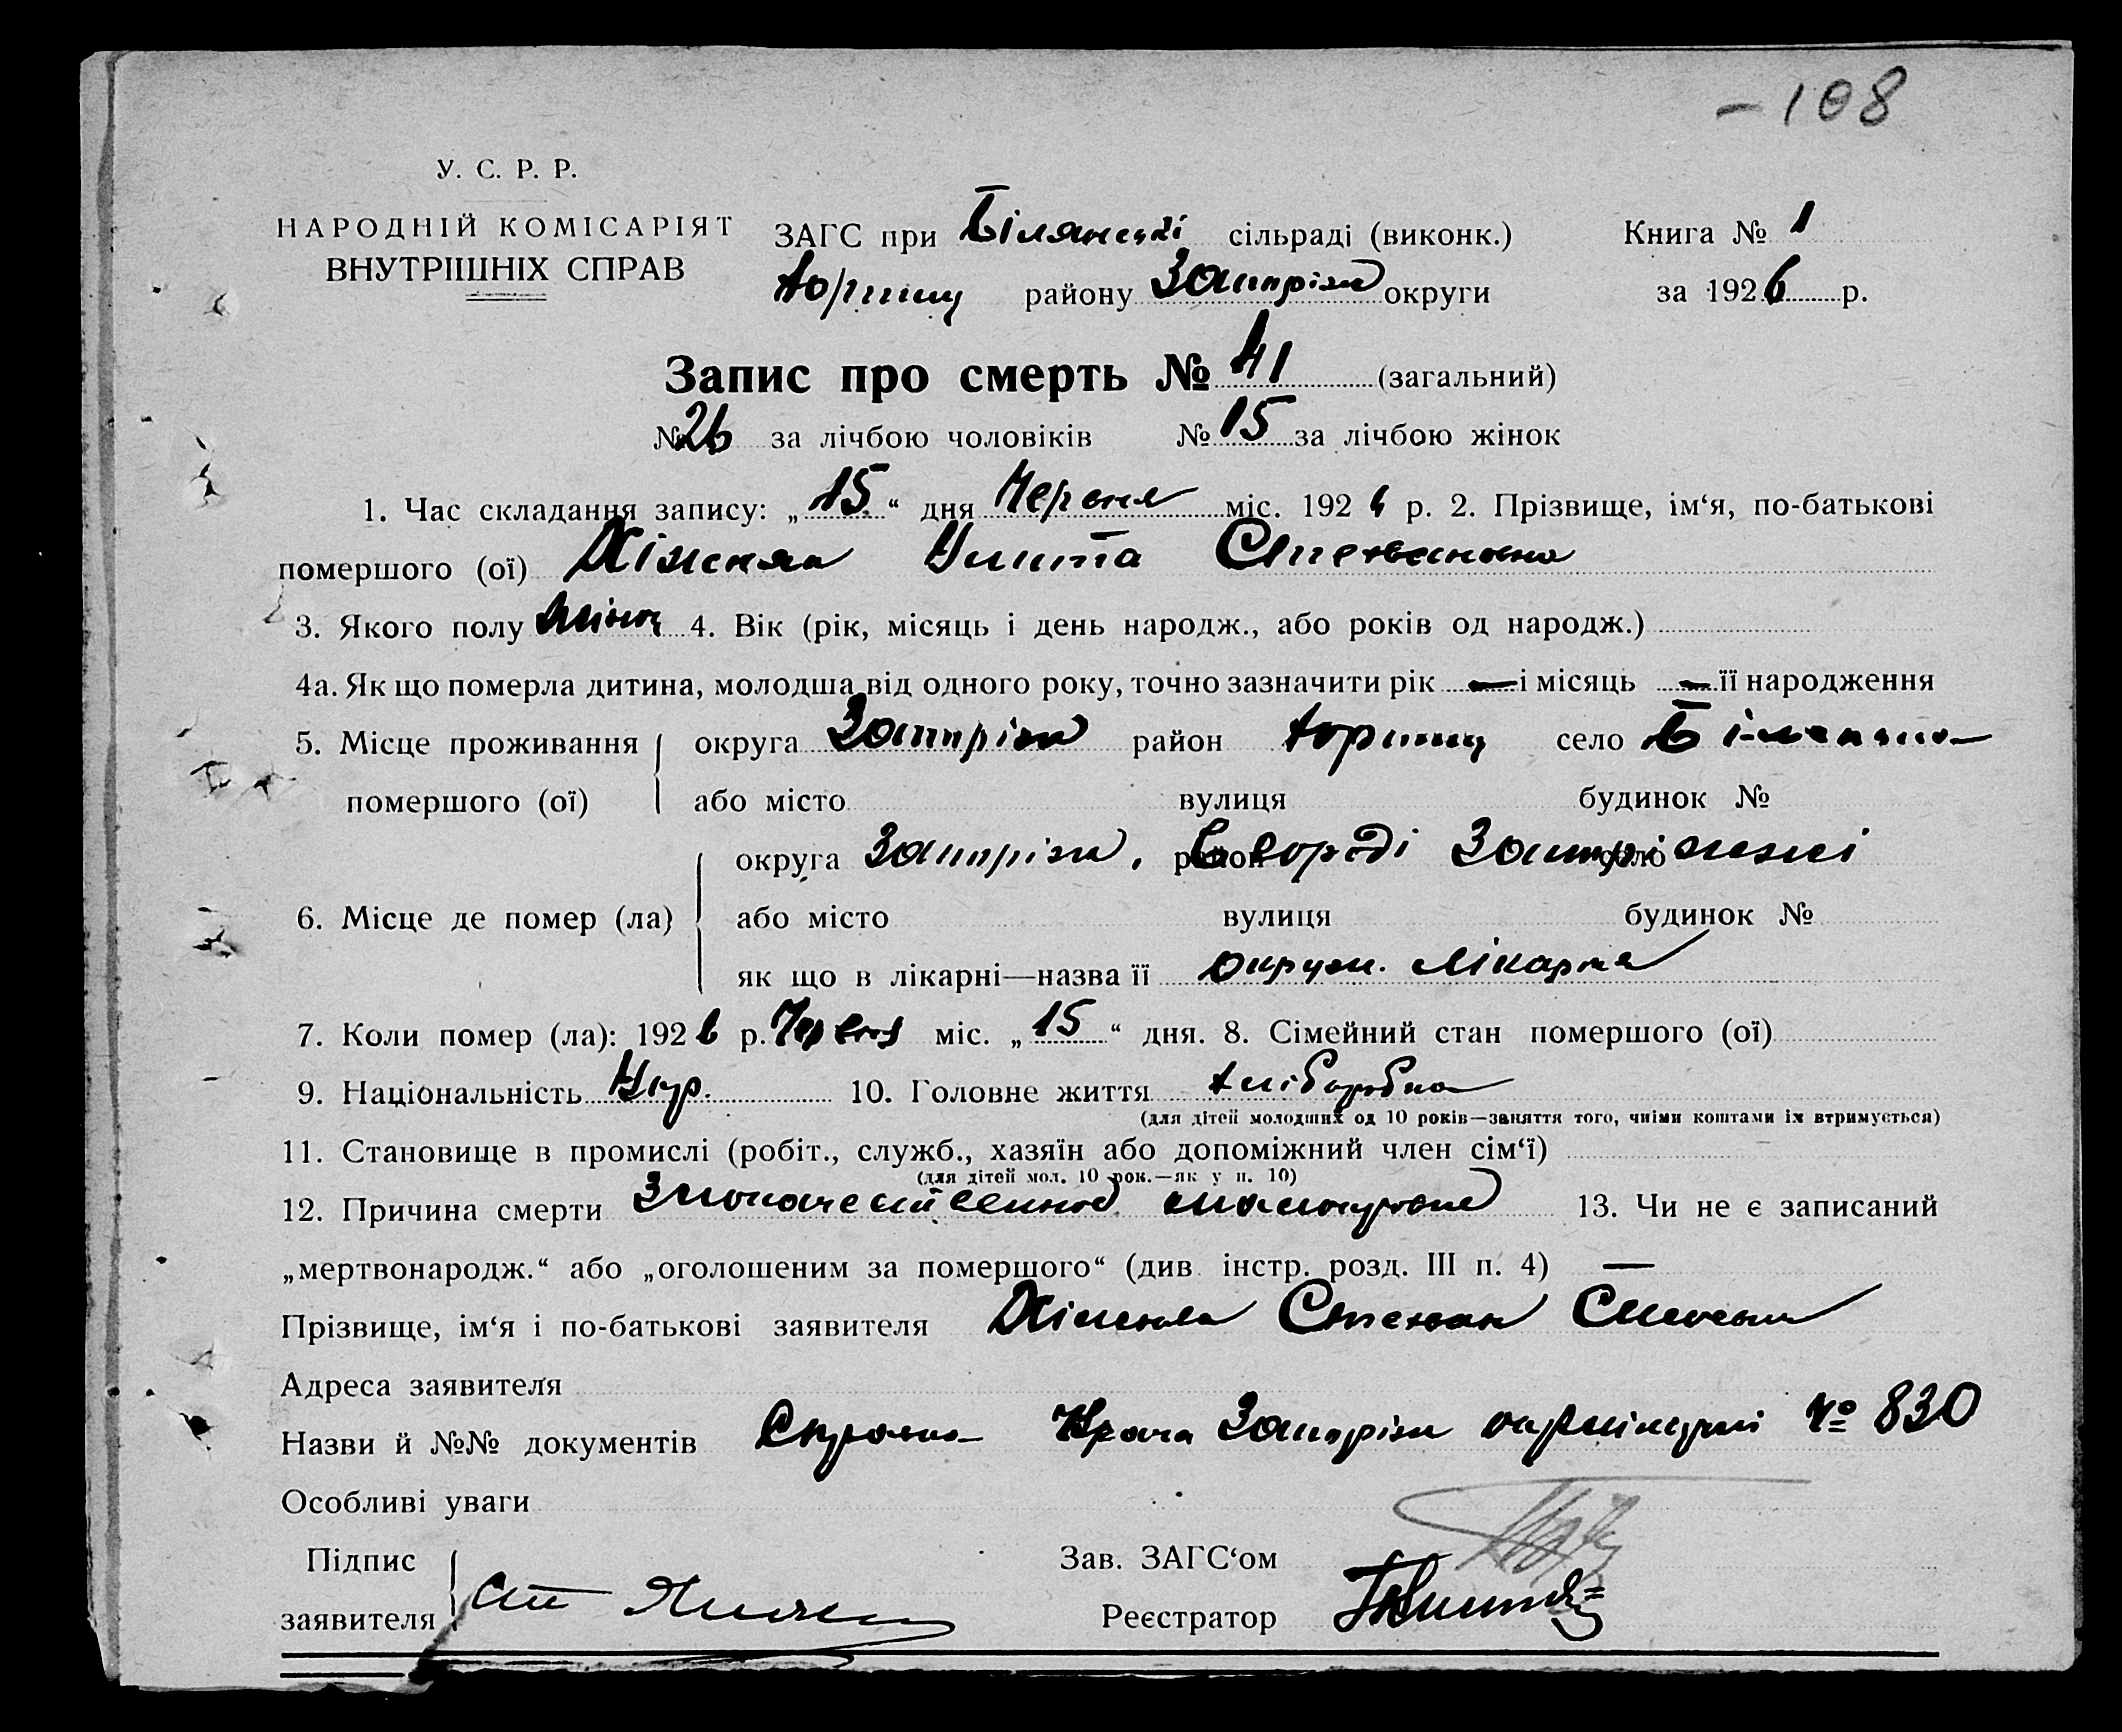 -108
У. С. Р. Р.
НАРОДНІЙ КОМІСАРІЯТ
ВНУТРІШНІХ СПРАВ
ЗАГС при Білянській сільраді (виконк.)
району Запоріж округи
Книга № 1
за 1926 р.
Запис про смерть № 41 (загальний)
№ 26 за лічбою чоловіків № 15 за лічбою жінок
1. Час складання запису: „15“ дня Червня міс. 1926 р. 2. Прізвище, ім‘я, по-батькові
помершого (ої) Степановна
3. Якого полу жіноч 4. Вік (рік, місяць і день народж., або років од народж.)
4а. Як що померла дитина, молодша від одного року, точно зазначити рік — і місяць — її народження
5. Місце проживання помершого (ої) округа Запоріж район село
або місто вулиця будинок №
6. Місце де помер (ла) округа Запоріж, район в городі село Запоріжжі
або місто вулиця будинок №
як що в лікарні—назва її окруж. лікарня
7. Коли помер (ла): 1926 р. Червня міс. „15“ дня. 8. Сімейний стан помершого (ої)
9. Національність Укр. 10. Головне життя хліборобка
(для дітей молодших од 10 років—заняття того, чиїми коштами їх втримується)
11. Становище в промислі (робіт., служб., хазяїн або допоміжний член сім‘ї)
(для дітей мол. 10 рок.—як у п. 10)
12. Причина смерти 13. Чи не є записаний
„мертвонародж.“ або „оголошеним за помершого“ (див. інстр. розд. III п. 4) —
Прізвище, ім‘я і по-батькові заявителя Степан
Адреса заявителя
Назви й №№ документів Справка Врача Запоріж № 830
Особливі уваги
Підпис заявителя
Зав. ЗАГС‘ом
Реєстратор